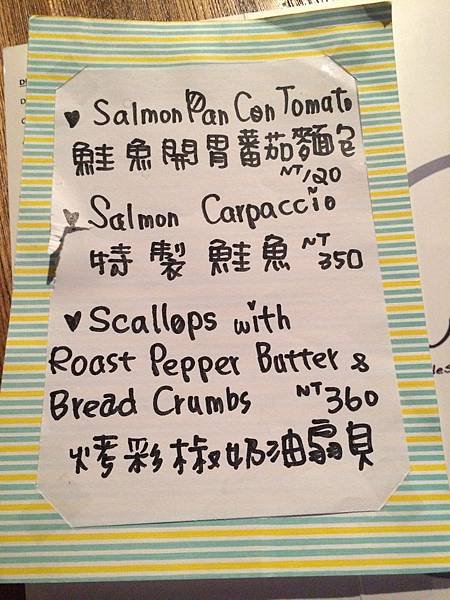 ♥ Salmon Pan Con Tomato
鮭魚開胃蕃茄麵包
NT120
♥ Salmon Carpaccio
特製鮭魚 NT350
♥ Scallops with
Roast Pepper Butter &
Bread Crumbs NT360
烤彩椒奶油扇貝